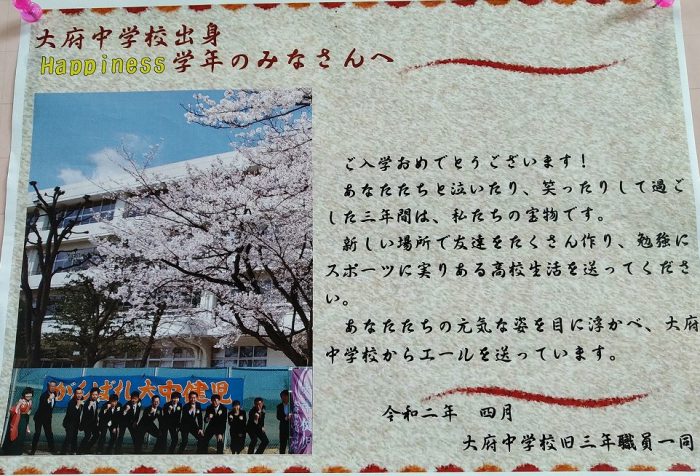 大府中学校出身
Happiness学年のみなさんへ
ご入学おめでとうございます！
あなたたちと泣いたり、笑ったりして過ご
した三年間は、私たちの宝物です。
新しい場所で友達をたくさん作り、勉強に
スポーツに実りある高校生活を送ってくださ
い。
あなたたちの元気な姿を目に浮かべ、大府
中学校からエールを送っています。
がんばれ大中健児
令和二年　四月
大府中学校旧三年職員一同